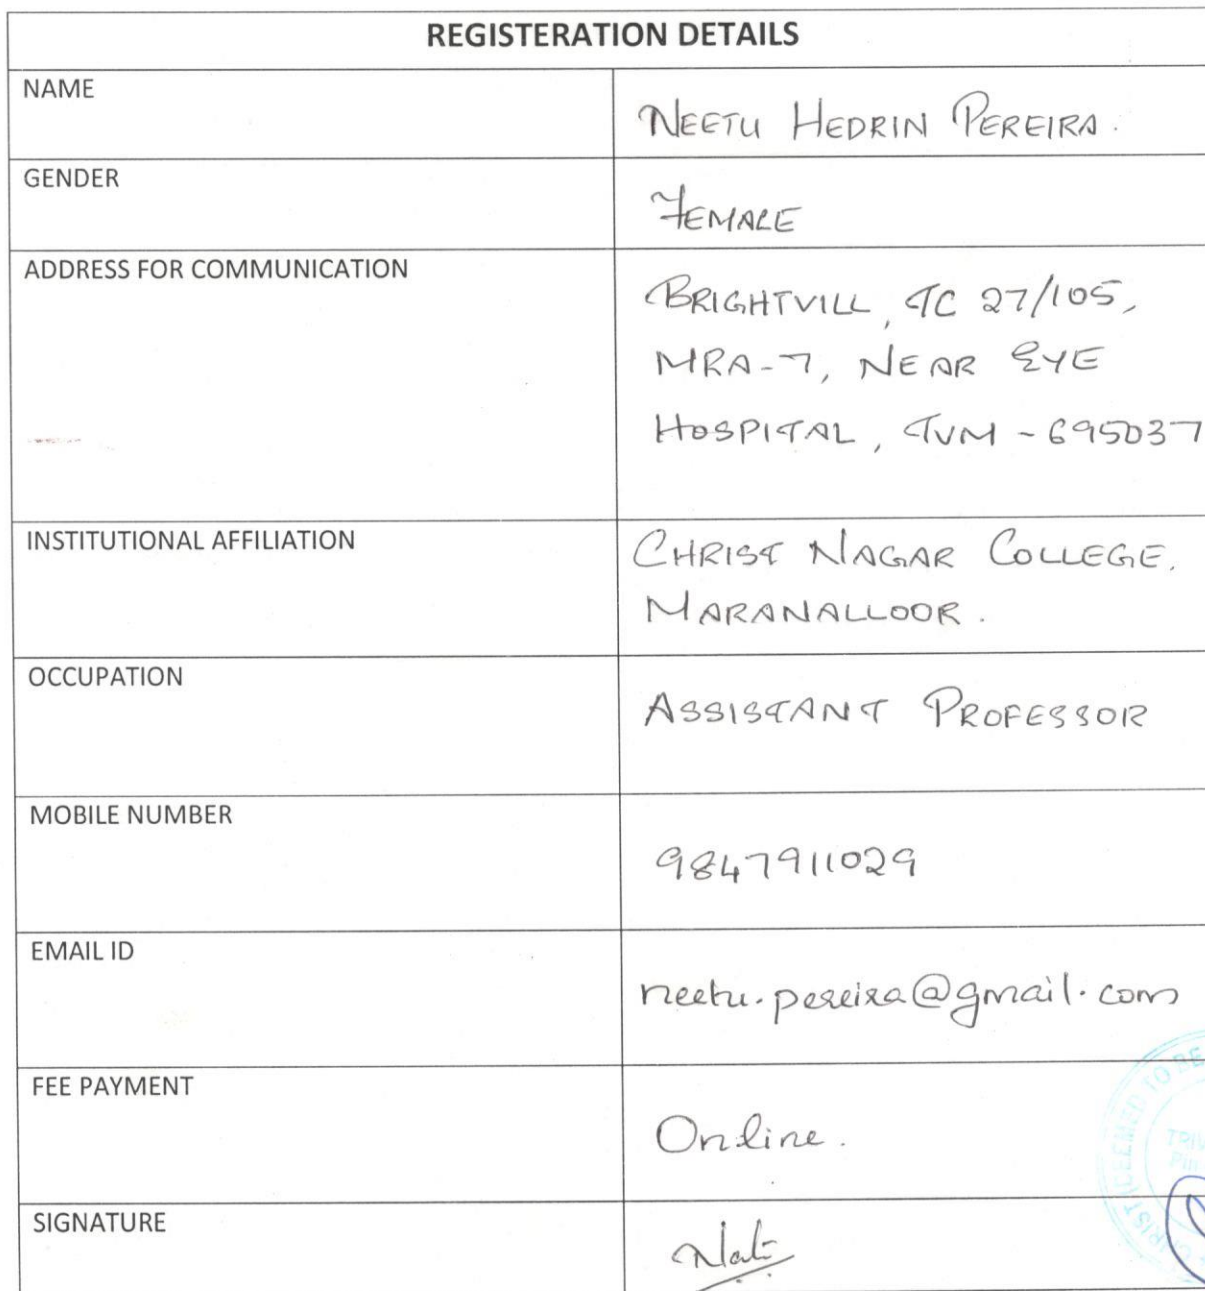 REGISTERATION DETAILS
NAME
NEETU HEDRIN PEREIRA.
GENDER
FEMALE
ADDRESS FOR COMMUNICATION
BRIGHTVILL, TC 27/105,
MRA-7, NEAR EYE
HOSPITAL, TVM - 695037
INSTITUTIONAL AFFILIATION
CHRIST NAGAR COLLEGE.
MARANALLOOR.
OCCUPATION
ASSISTANT PROFESSOR
MOBILE NUMBER
9847911029
EMAIL ID
neetu.pereira@gmail.com
FEE PAYMENT
Online.
SIGNATURE
CHRIST (DEEMED TO BE